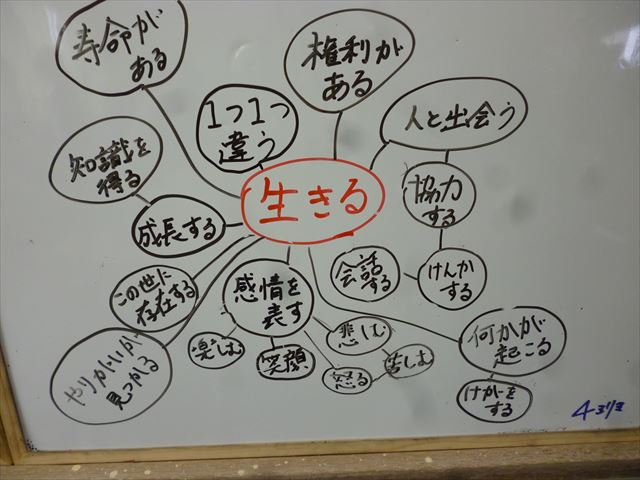 寿命が
ある
権利が
ある
1つ1つ
違う
人と出会う
知識を
得る
生きる
協力
する
成長する
会話
する
けんか
する
この世に
存在する
感情を
表す
やりがいが
見つかる
楽しむ
笑顔
悲しむ
怒る
苦しむ
何かが
起こる
けがを
する